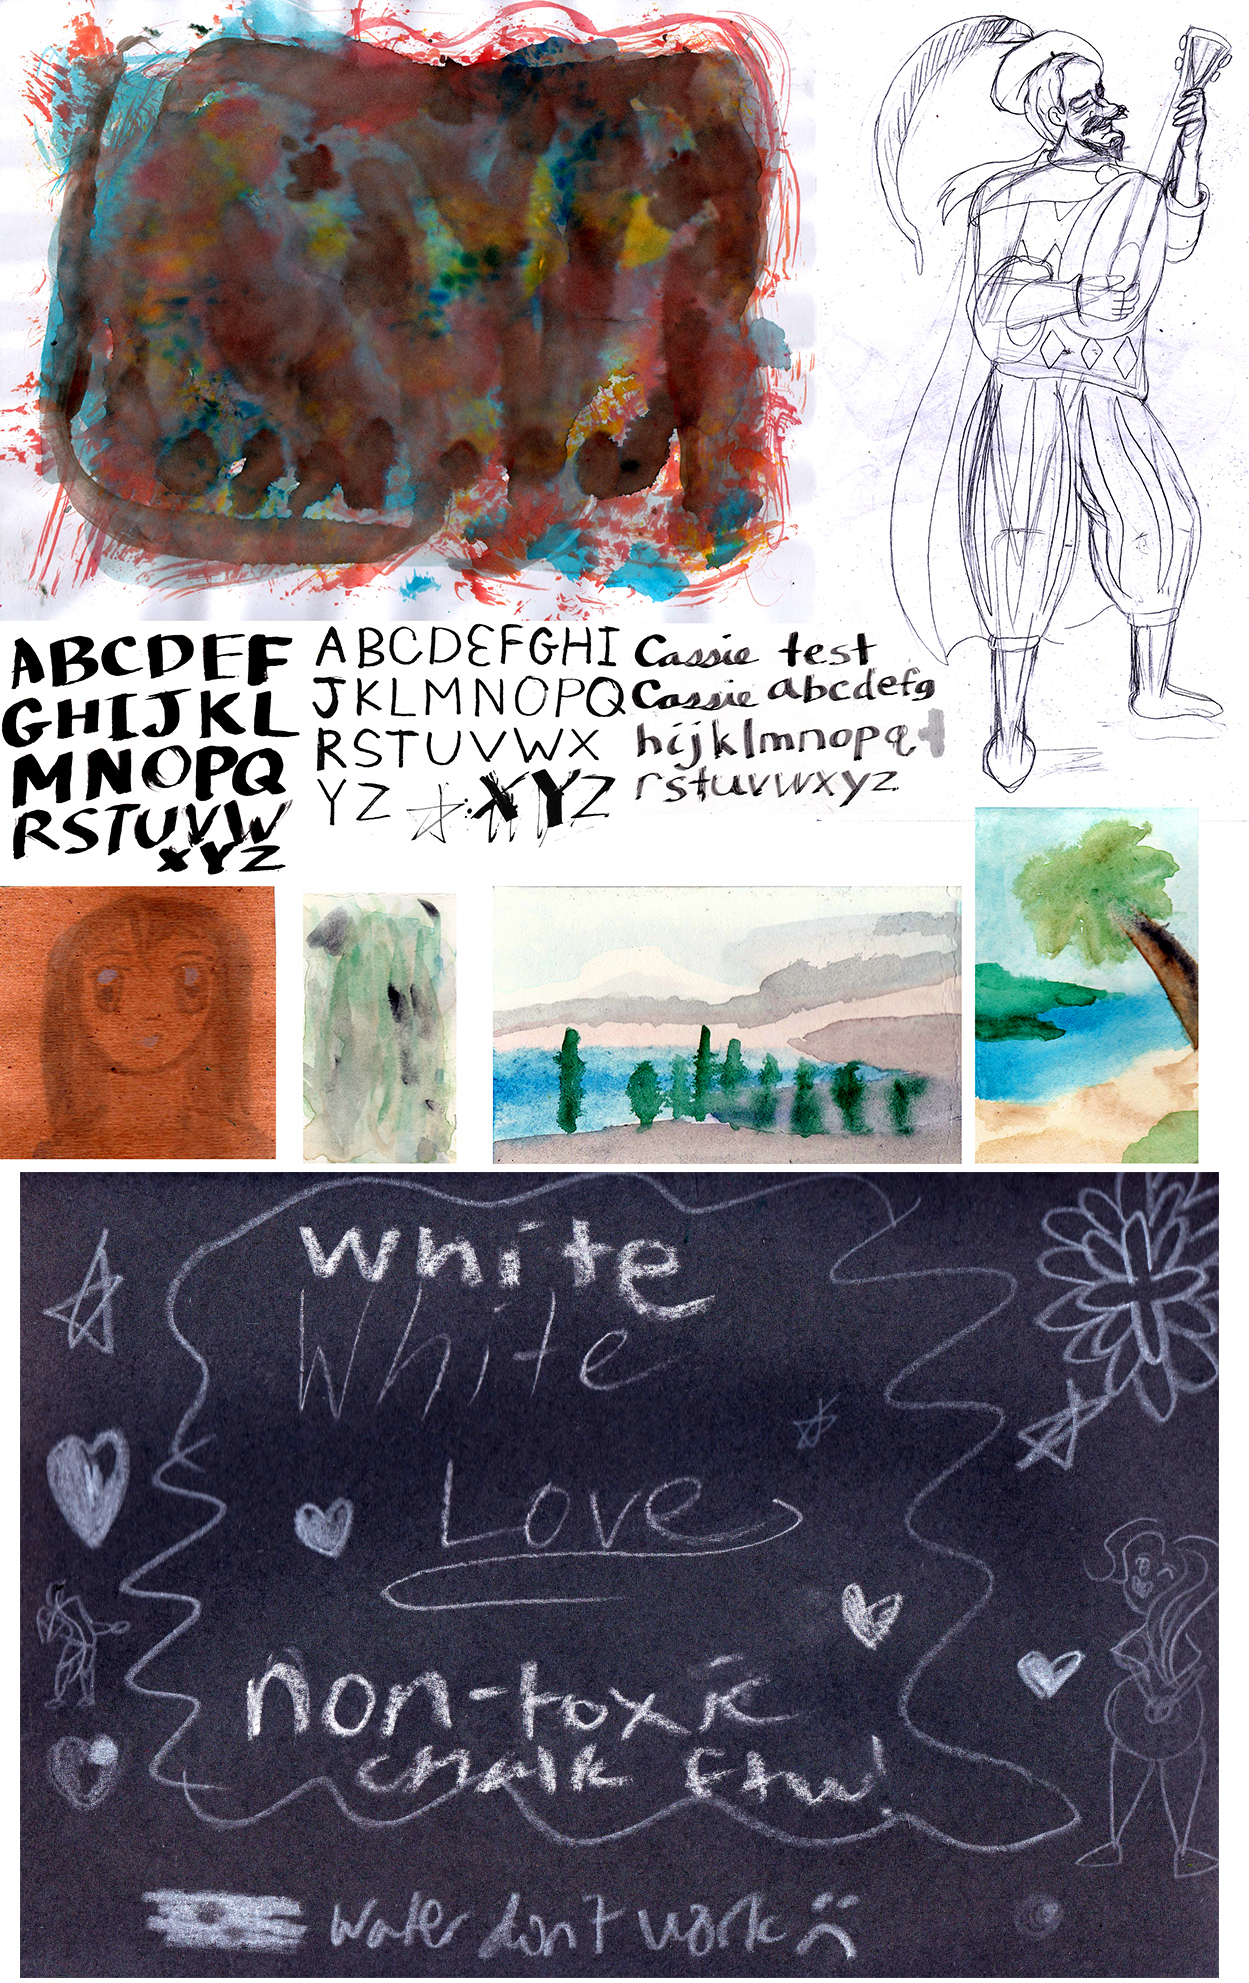 ABCDEF
GHIJKL
MNOPQ
RSTUVW
XYZ
ABCDEFGHI
JKLMNOPQ
RSTUVWX
YZ XYZ
Cassie test
Cassie abcdefg
hijklmnopq
rstuvwxyz
white
White
Love
non-toxic
chalk Ftw!
water don't work :(